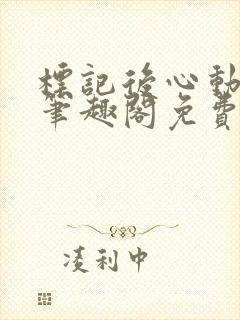 標記後心動
筆趣閣免費
凌利中